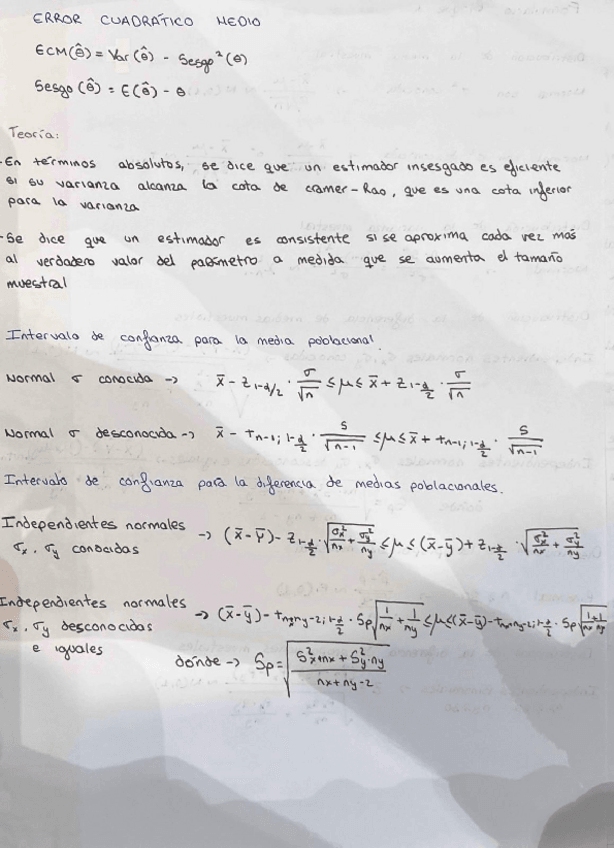 ERROR CUADRÁTICO MEDIO
ECM(θ̂) = Var(θ̂) - Sesgo²(θ)
Sesgo(θ̂) = E(θ̂) - θ
Teoría:
-En términos absolutos, se dice que un estimador insesgado es eficiente
si su varianza alcanza la cota de cramer-Rao, que es una cota inferior
para la varianza
-Se dice que un estimador es consistente si se aproxima cada vez más
al verdadero valor del parámetro a medida que se aumenta el tamaño
muestral
Intervalo de confianza para la media poblacional.
Normal σ conocida -> x̄ - z_{1-α/2} · σ/√n ≤ μ ≤ x̄ + z_{1-α/2} · σ/√n
Normal σ desconocida -> x̄ - t_{n-1; 1-α/2} · s/√(n-1) ≤ μ ≤ x̄ + t_{n-1; 1-α/2} · s/√(n-1)
Intervalo de confianza para la diferencia de medias poblacionales.
Independientes normales -> (x̄-ȳ) - z_{1-α/2} · √(σx²/nx + σy²/ny) ≤ μ ≤ (x̄-ȳ) + z_{1-α/2} · √(σx²/nx + σy²/ny)
σx, σy conocidas
Independientes normales -> (x̄-ȳ) - t_{nx+ny-2; 1-α/2} · Sp √(1/nx + 1/ny) ≤ μ ≤ (x̄-ȳ) - t_{nx+ny-2; 1-α/2} · Sp √(1/nx + 1/ny)
σx, σy desconocidas
e iguales
donde -> Sp = √((S²x+nx + S²y·ny)/(nx+ny-2))